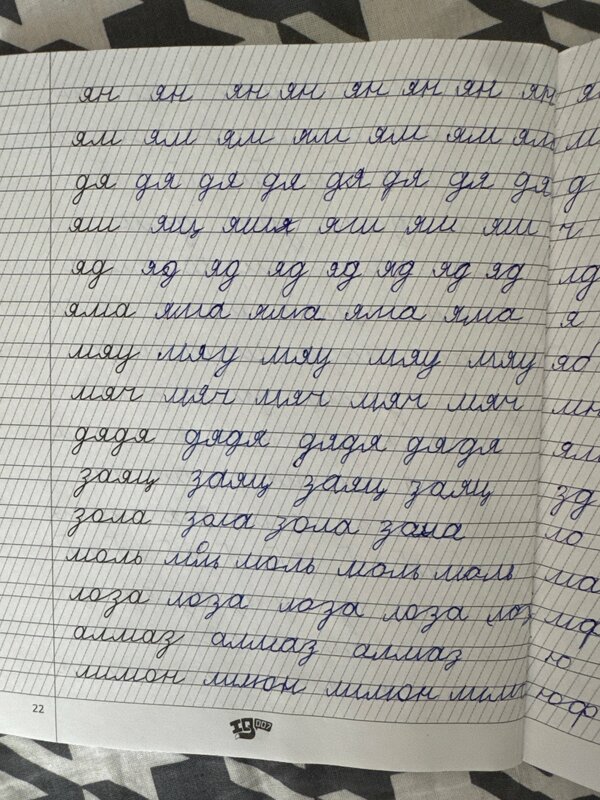 ян ян ян ян ян ян ян ян
ям ям ям ям ям ям ям
дя дя дя дя дя дя дя дя
яш ящ яшя яш яш яш
яд яд яд яд яд яд яд яд
яма яма яма яма яма
мяу мяу мяу мяу мяу
мяч мяч мяч мяч мяч
дядя дядя дядя дядя
заяц заяц заяц заяц
зола зола зола
моль моль моль моль моль
лоза лоза лоза лоза лоз
алмаз алмаз алмаз
лимон лимон лимон лим
22 IQ 007